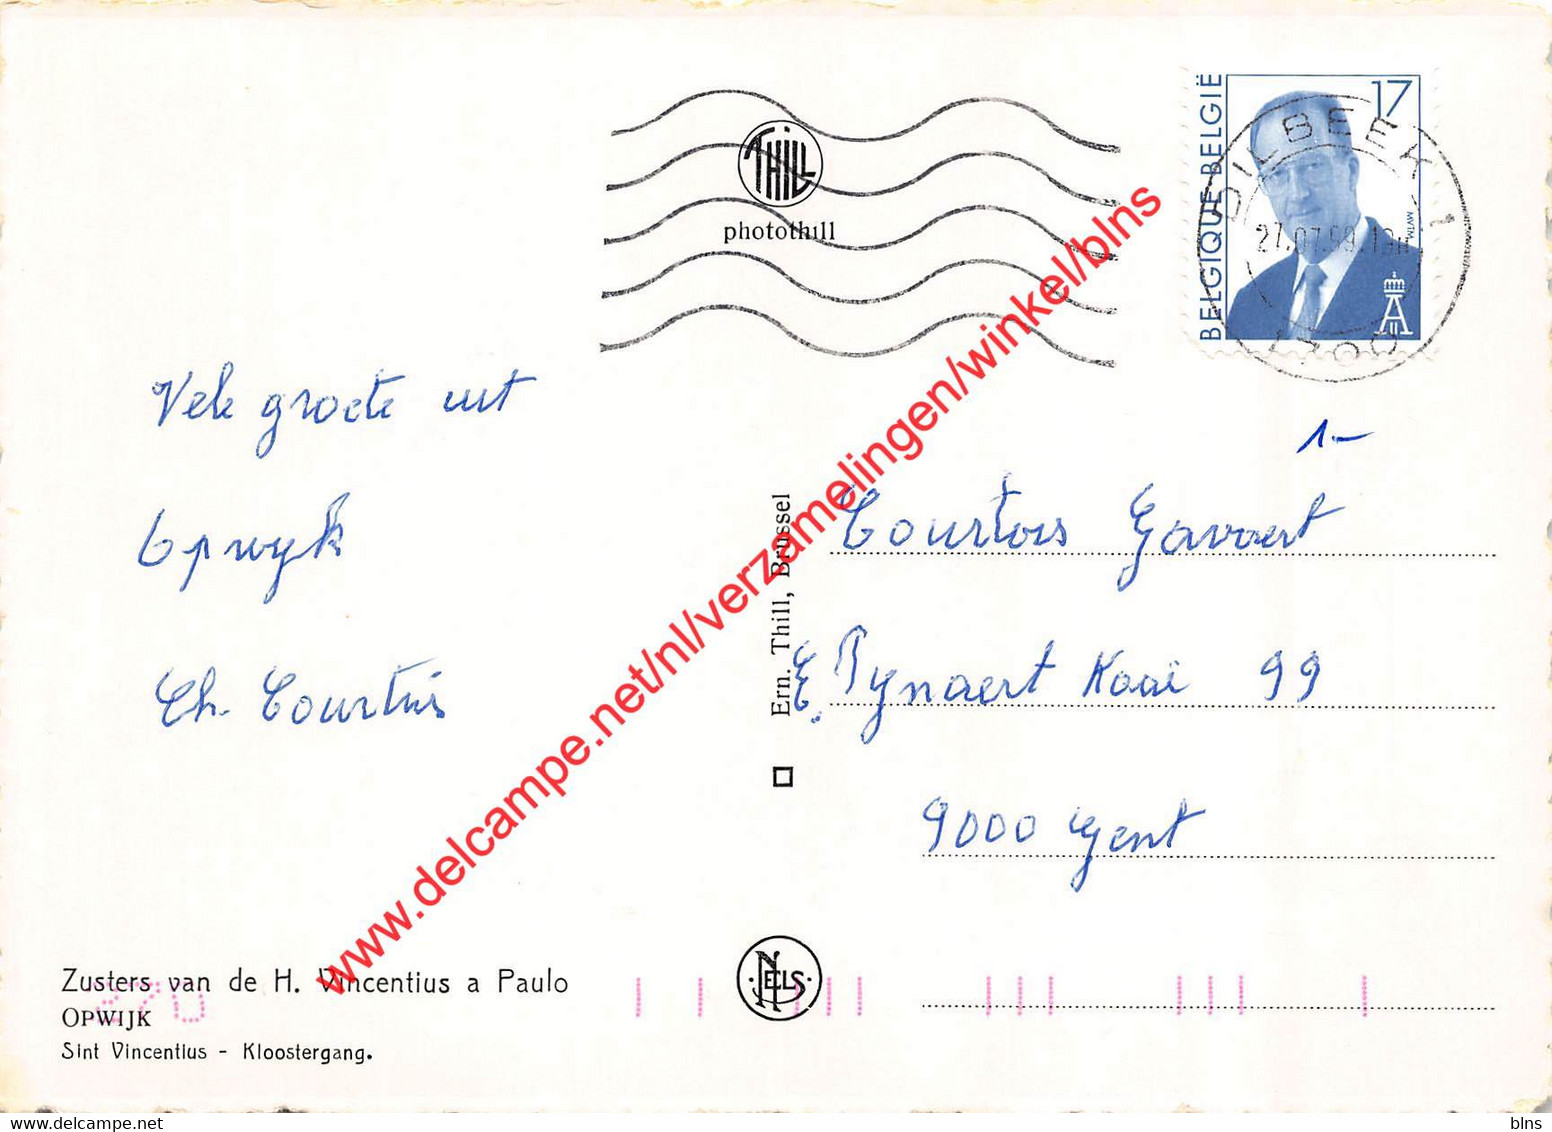 17
BELGIQUE-BELGIË
MVTM
DILBEEK 1
27.07.99
1700
A THILL
photothill
Vele groete uit
Opwijk
Ch. Courtois
1.-
Courtois Gavaert
E. Pynaert Kaai 99
9000 Gent
Ern. Thill, Brussel
NELS
Zusters van de H. Vincentius a Paulo
OPWIJK
Sint Vincentius - Kloostergang.
270
www.delcampe.net/nl/verzamelingen/winkel/blns
delcampe.net
blns